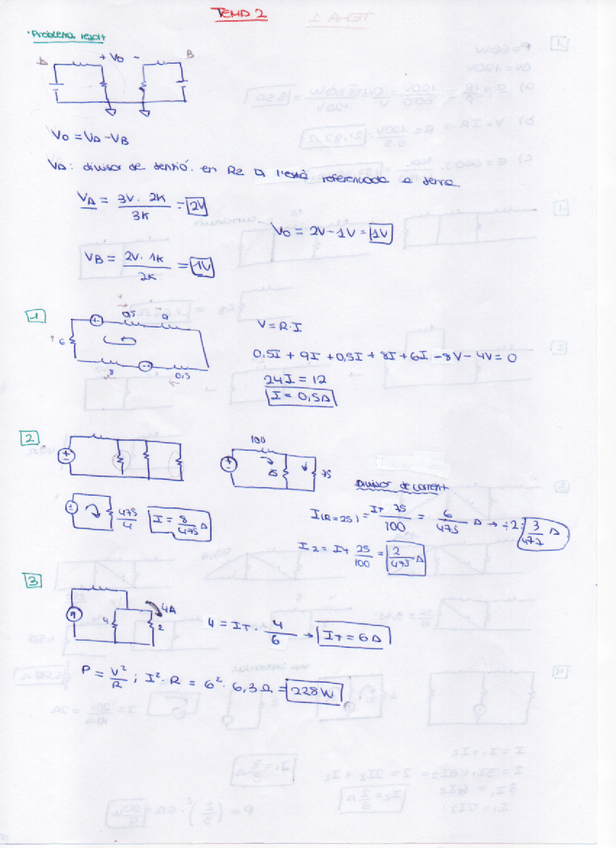 TEMA 2
Problema resolt
A + Vo - B
Vo = VA - VB
VA: divisor de tensió en R2 a l'està referenciada a terra.
VA = 3V · 2K / 3K = 2V
Vo = 2V - 1V = 1V
VB = 2V · 1K / 2K = 1V
1
0,5 9
6
8 0,5
V = R · I
0,5I + 9I + 0,5I + 8I + 6I - 8V - 4V = 0
24I = 12
I = 0,5A
2
100
25 75
475/4
I = 8/475 A
Divisor de corrent
I(R=25) = IT 75/100 = 6/475 A → ÷2: 3/475 A
I2 = IT 25/100 = 2/475 A
3
4A
4 2
4 = IT · 4/6 → IT = 6A
P = V²/R ; I² · R = 6² · 6,3Ω = 228W